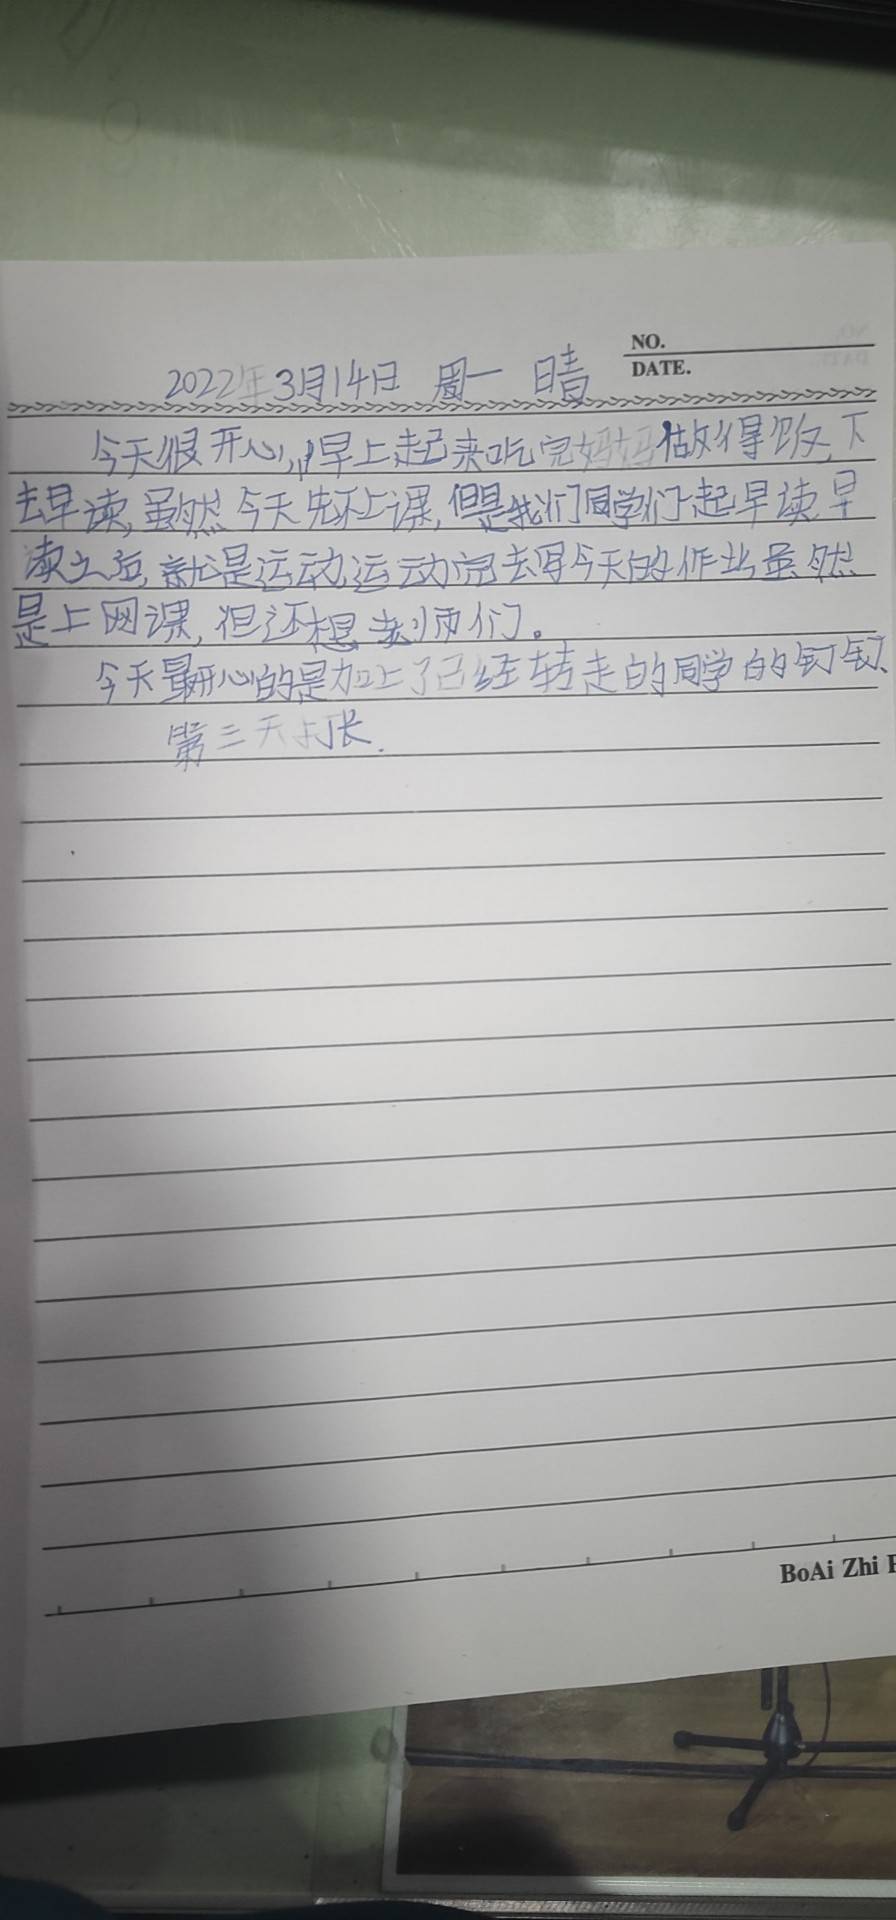 NO.
DATE.
2022年3月14日 周一 晴
今天很开心,早上起来吃完妈妈做得饭,下
去早读,虽然今天先不上课,但是我们同学们一起早读早
读之后,就是运动,运动完去写今天的作业虽然
是上网课,但还想老师们。
今天最开心的是加上了已经转走的同学的钉钉、
第三天
BoAi Zhi